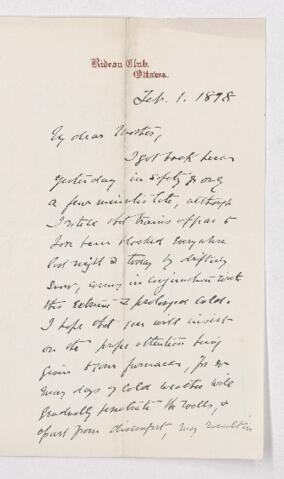 Rideau Club,
Ottawa.
Feb. 1. 1898
My dear
I got back here
yesterday in safety & only
a few minutes late, although
I that trains appear to
have been blocked everywhere
last night & today by drifting
snow, in conjunction with
this extreme & prolonged cold.
I hope that you will insist
on the proper attention being
given to our furnaces, for so
many days of cold weather will
gradually penetrate the walls, &
apart from discomfort, may result in